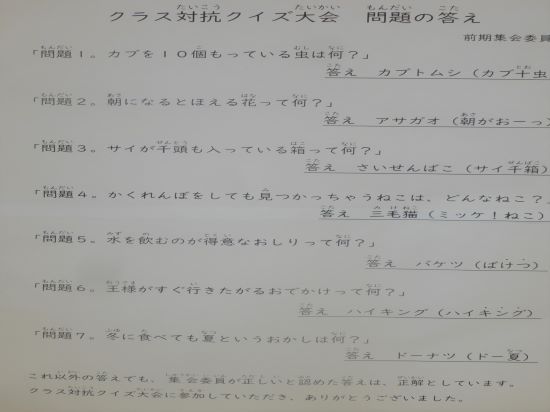 クラス対抗クイズ大会　問題の答え
前期集会委員
「問題１。カブを１０個もっている虫は何？」
答え　カブトムシ（カブ十虫
「問題２。朝になるとほえる花って何？」
答え　アサガオ（朝がおーっ）
「問題３。サイが千頭も入っている箱って何？」
答え　さいせんばこ（サイ千箱）
「問題４。かくれんぼをしても見つかっちゃうねこは、どんなねこ？」
答え　三毛猫（ミッケ！ねこ）
「問題５。水を飲むのが得意なおしりって何？」
答え　バケツ（ばけつ）
「問題６。王様がすぐ行きたがるおでかけって何？」
答え　ハイキング（ハイキング）
「問題７。冬に食べても夏というおかしは何？」
答え　ドーナツ（ドー夏）
これ以外の答えでも、集会委員が正しいと認めた答えは、正解としています。
クラス対抗クイズ大会に参加していただき、ありがとうございました。